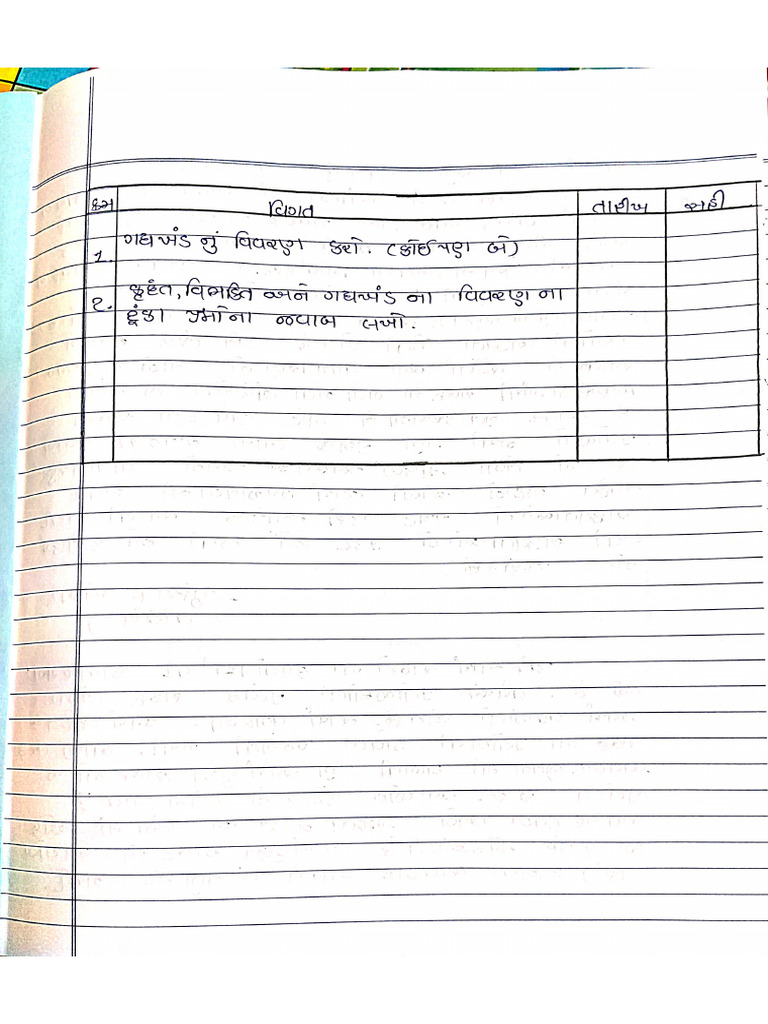 ક્રમ વિગત તારીખ સહી
1. ગદ્યખંડ નું વિવરણ કરો. (કોઈપણ બે)
2. કૃદંત, વિભક્તિ અને ગદ્યખંડ ના વિવરણ ના
ટૂંકા પ્રશ્નોના જવાબ લખો.